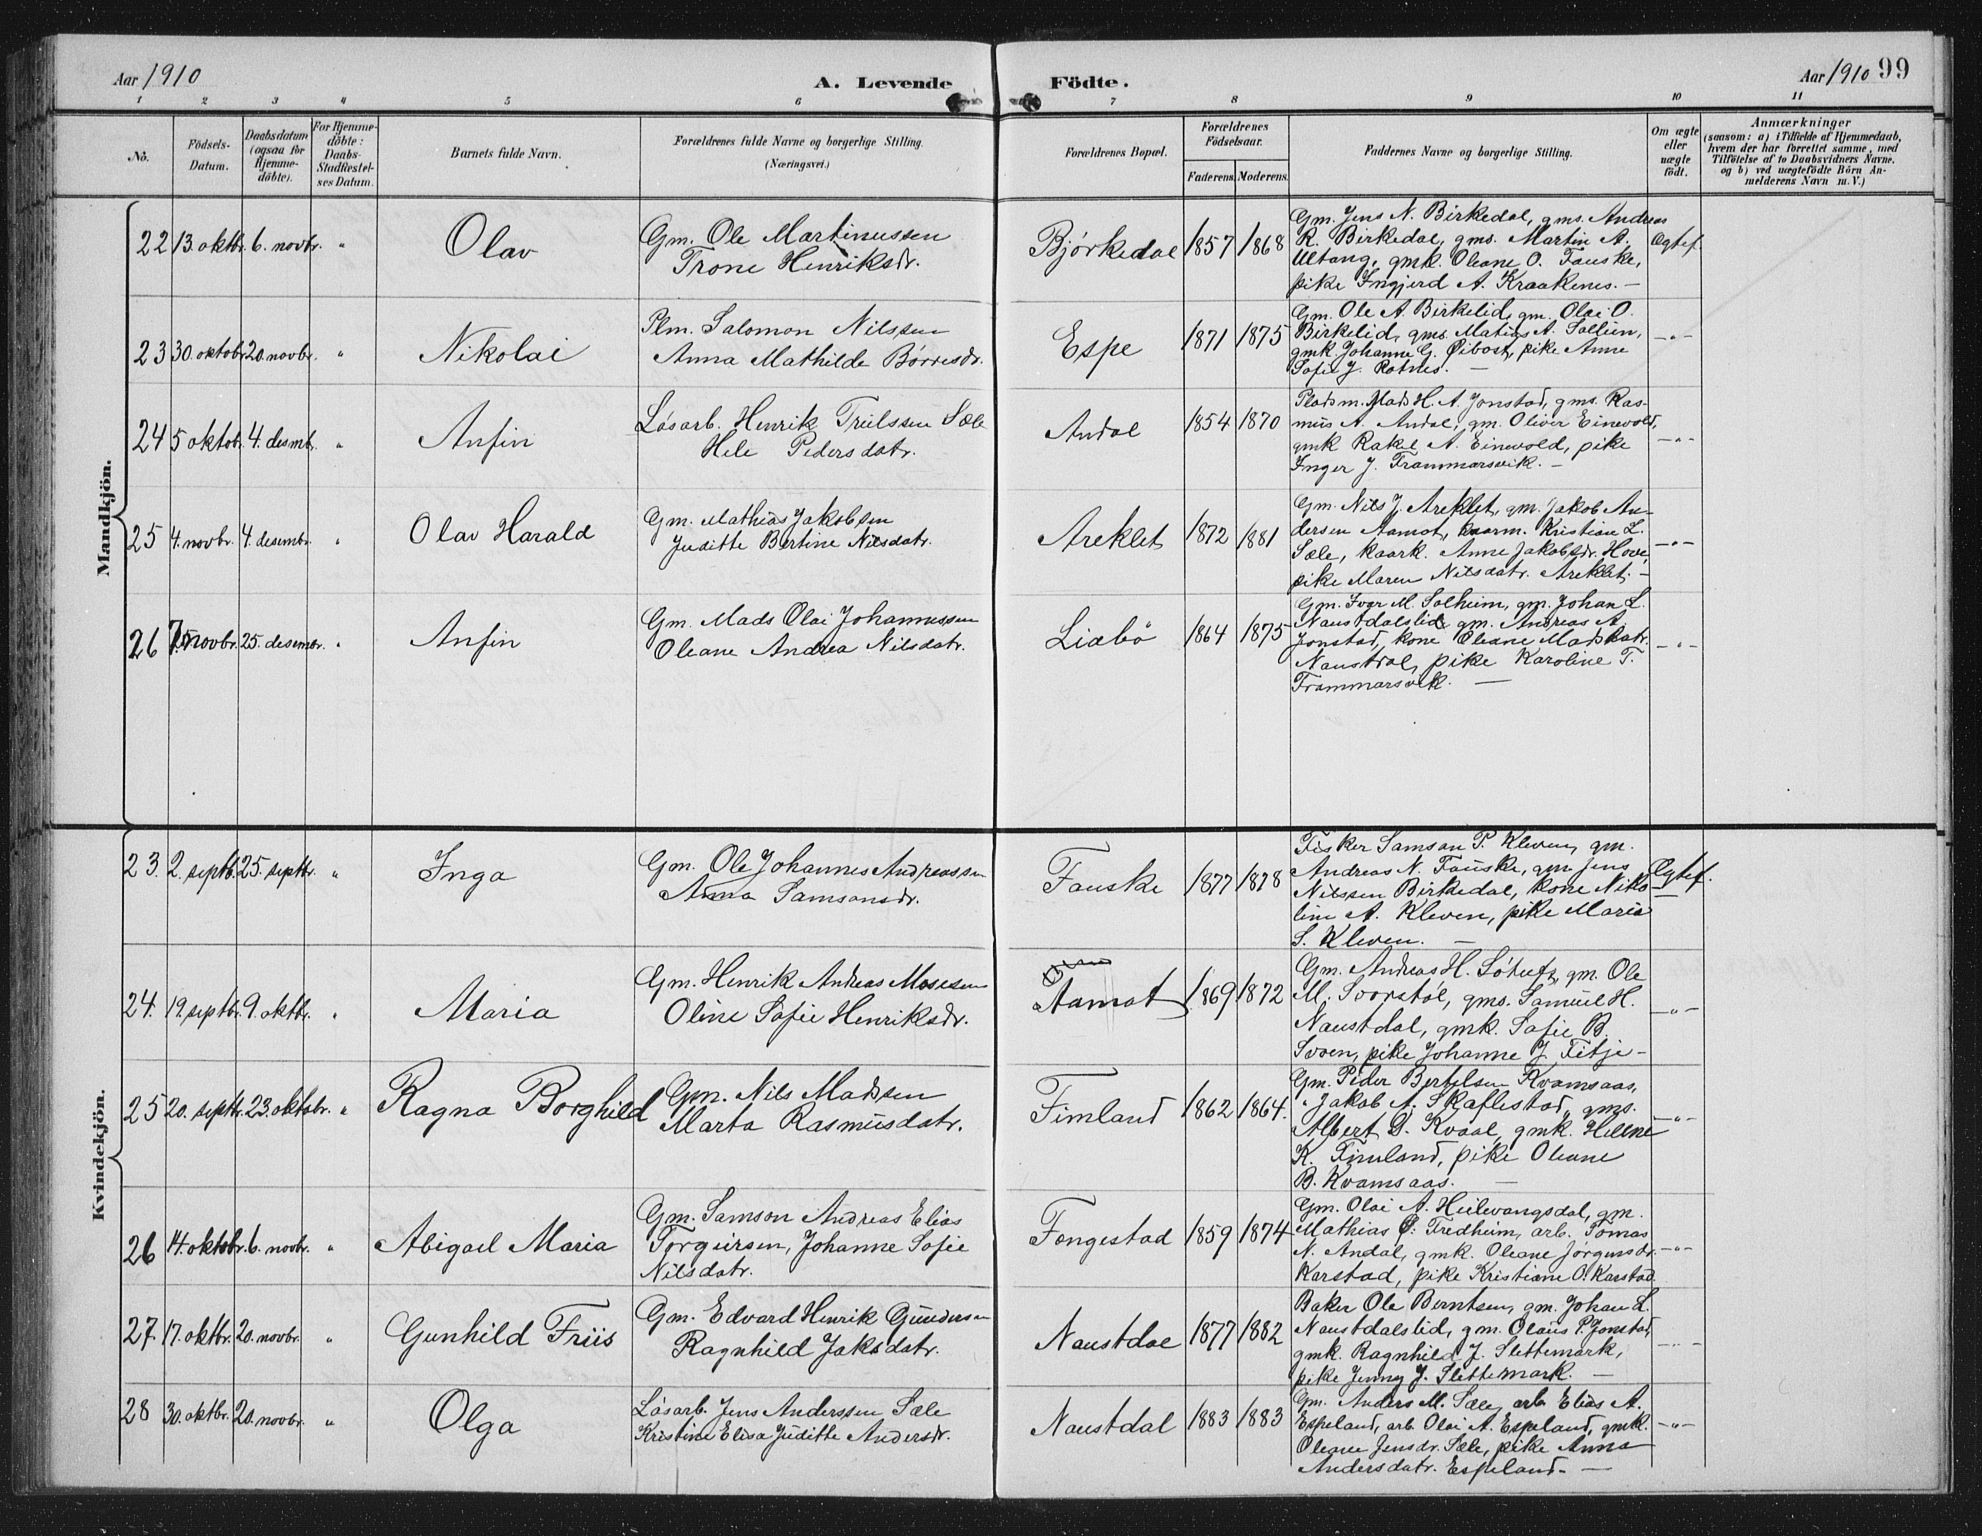 Aar 1910
A. Levende Födte.
Aar 1910 99
1 2 3 4 5 6 7 8 9 10 11
No.
Födsels-
Datum.
Daabsdatum
(ogsaa for
Hjemme-
döbte).
For Hjemme-
döbte:
Daabs-
Stadfæstel-
ses Datum.
Barnets fulde Navn.
Forældrenes fulde Navne og borgerlige Stilling.
(Næringsvei.)
Forældrenes Bopæl.
Forældrenes
Födselsaar.
Faderens. Moderens.
Faddernes Navne og borgerlige Stilling.
Om ægte
eller
uægte
födt.
Anmærkninger
(saasom: a) i Tilfælde af Hjemmedaab,
hvem der har forrettet samme, med
Tilföielse af to Daabsvidners Navne.
og b) ved uægtefödte Börn An-
melderens Navn m. V.)
Mandkjön.
22 13. oktbr. 6. novbr. " Olav
Gm. Ole Martinussen
Trone Henriksdr.
Bjørkedal 1857 1868
Gm. Jens N. Birkedal, gms. Andreas
R. Birkedal, gms. Martin A.
Ultang, gmk. Oleane O. Fauske,
pike Ingjerd A. Kraakenes. —
Ægtef.
23 30. oktobr. 20. novbr. " Nikolai
Plm. Salomon Nilssen
Anna Mathilde Børresdr.
Espe 1871 1875
Gm. Ole A. Birkelid, gm. Olai O.
Birkelid, gms. Matias A. Solheim,
gmk Johanne G. Øibost, pike Anne
Sofie J. Rotnes. —
—"—
24 5 oktob. 4. desmb. " Anfin
Løsarb. Henrik Truilssen Sæle
Hele Pedersdatr.
Andal 1854 1870
Pladsm. Mads H. A. Jonstad, gms. Ras-
mus A. Andal, gm. Oliver Einevold,
gmk Rakel A. Einevold, pike
Inger J. Frammarsvik. —
—"—
25 4. novbr. 4. desembr. " Olav Harald
Gm. Mathias Jakobsen
Juditte Bertine Nilsdatr.
Areklet 1872 1881
Gm. Nils J. Areklet, gm. Jakob An-
dersen Aamot, kaarm. Kristian L.
Sæle, kaark. Anne Jakobsdr. Hove,
pike Maren Nilsdatr. Areklet. —
—"—
26 novbr. 25. desembr. " Anfin
Gm. Mads Olai Johannussen
Oleane Andrea Nilsdatr.
Liabø 1864 1875
Gm. Ivar M. Solheim, gm. Johan L.
Naustdalslid, gm. Andreas A.
Jonstad, kone Oleane Madsdatr.
Naustdal, pike Karoline T.
Frammarsvik. —
—"—
Kvindekjön.
23. 2. septb. 25. septbr. " Inga
Gm. Ole Johannes Andreassen
Anna Samsonsdr.
Fauske 1877 1878
Fisker Samson P. Kleven, gm.
Andreas N. Fauske, gm. Jens
Nilssen Birkedal, kone Niko-
line A. Kleven, pike Maria
S. Kleven. —
Ægtef.
24. 19 septbr. 9. oktbr. " Maria
Gm. Henrik Andreas Mosesen
Oline Sofie Henriksdr.
Aamot 1869 1872
Gm. Andreas H. Søtuft, gm. Ole
M. Svorstøl, gms. Samuel H.
Naustdal, gmk. Sofie B.
Svoen, pike Johanne J. Fitje —
—"—
25 20. septbr. 23. oktobr. " Ragna Borghild
Gm. Nils Madsen
Marta Rasmusdatr.
Fimland 1862 1864.
Gm. Peder Bertelsen Kvamsaas,
" Jakob A. Skaflestad, gms.
Albert D. Kvaal, gmk. Hellene
K. Fimland, pike Oleane
B. Kvamsaas. —
—"—
26 14. oktobr. 6. novbr. " Abigael Maria
Gm. Samson Andreas Elias
Torgeirsen, Johanne Sofie
Nilsdatr.
Fongestad 1859 1874
Gm. Olai A. Heilevangsdal, gm.
Mathias Fredheim, arb. Tomas
N. Andal, gmk. Oleane Jørgensdr.
Karstad, pike Kristiane O. Karstad
—"—
27. 17. oktbr. 20. novbr. " Gunhild Friis
Gm. Edvard Henrik Gundersen
Ragnhild Jaksdatr.
Naustdal 1877 1882
Baker Ole Berntsen, gm. Johan L.
Naustdalslid, gm. Olaus P. Jonstad,
gmk. Ragnhild J. Slettemark,
pike Jenny J. Slettemark. —
—"—
28 30. oktbr. 20. novbr. " Olga
Løsarb. Jens Anderssen Sæle
Kristine Elisa Juditte Andersdr.
Naustdal 1883 1883
Gm. Anders M. Sæle, arb Elias A.
Espeland, arb. Olai A. Espeland, gmk.
Oleane Jensdr. Sæle, pike Anna
Andersdatr. Espeland. —
—"—